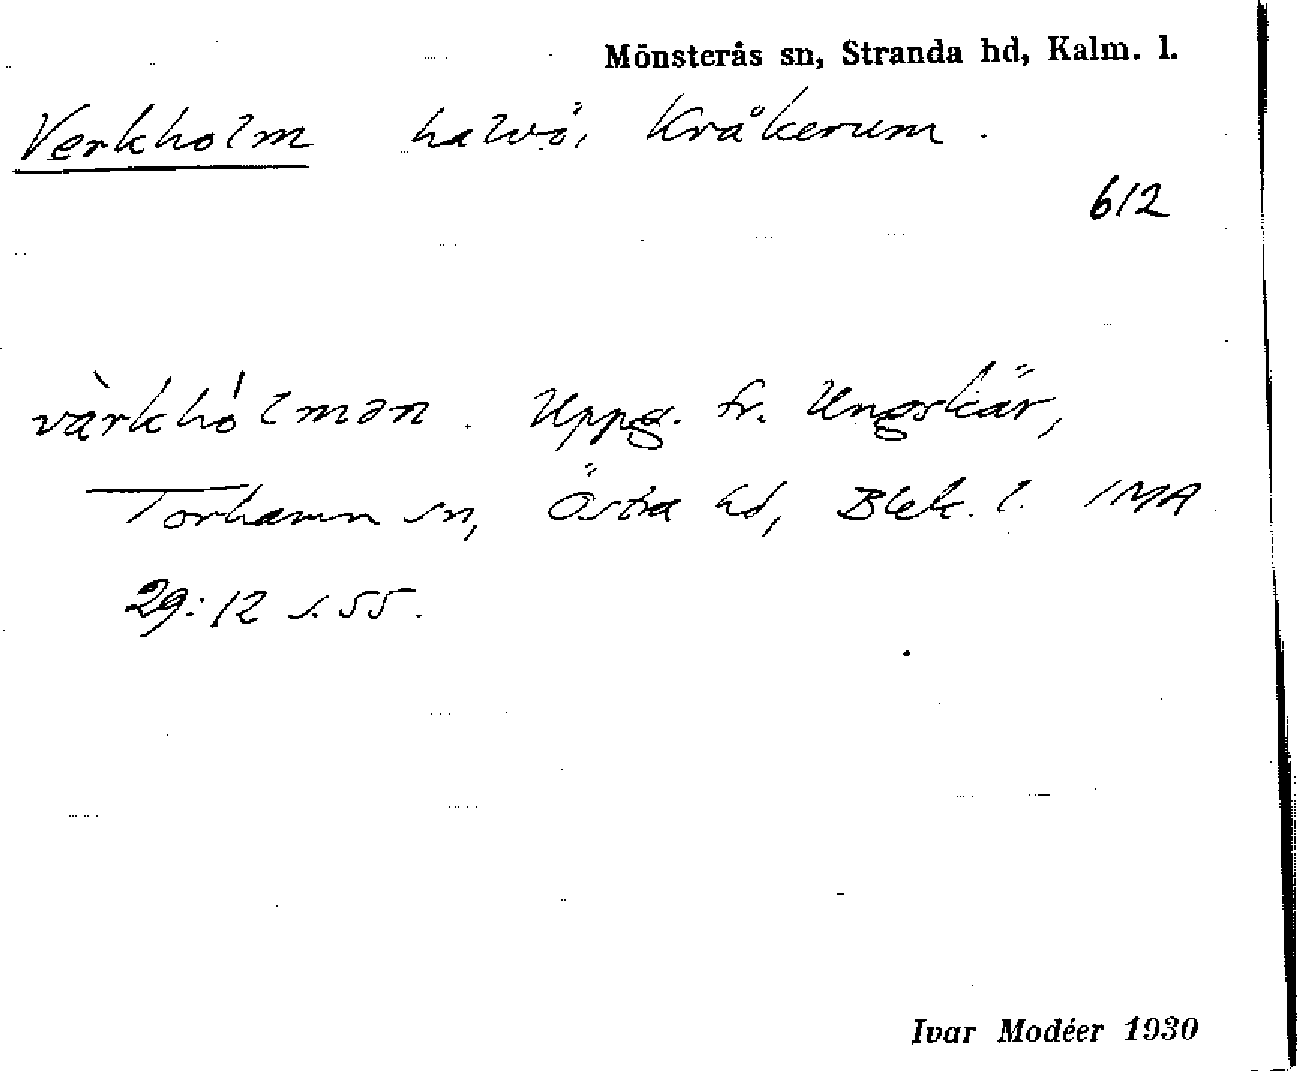 Mönsterås sn, Stranda hd, Kalm. l.
Verkholm halvö, Kråkerum.
612
vàrkhólmən. Uppg. fr. Ungskär,
Torhamn sn, Östra hd, Blek. l. IMA
29:12 s. 55.
Ivar Modéer 1930